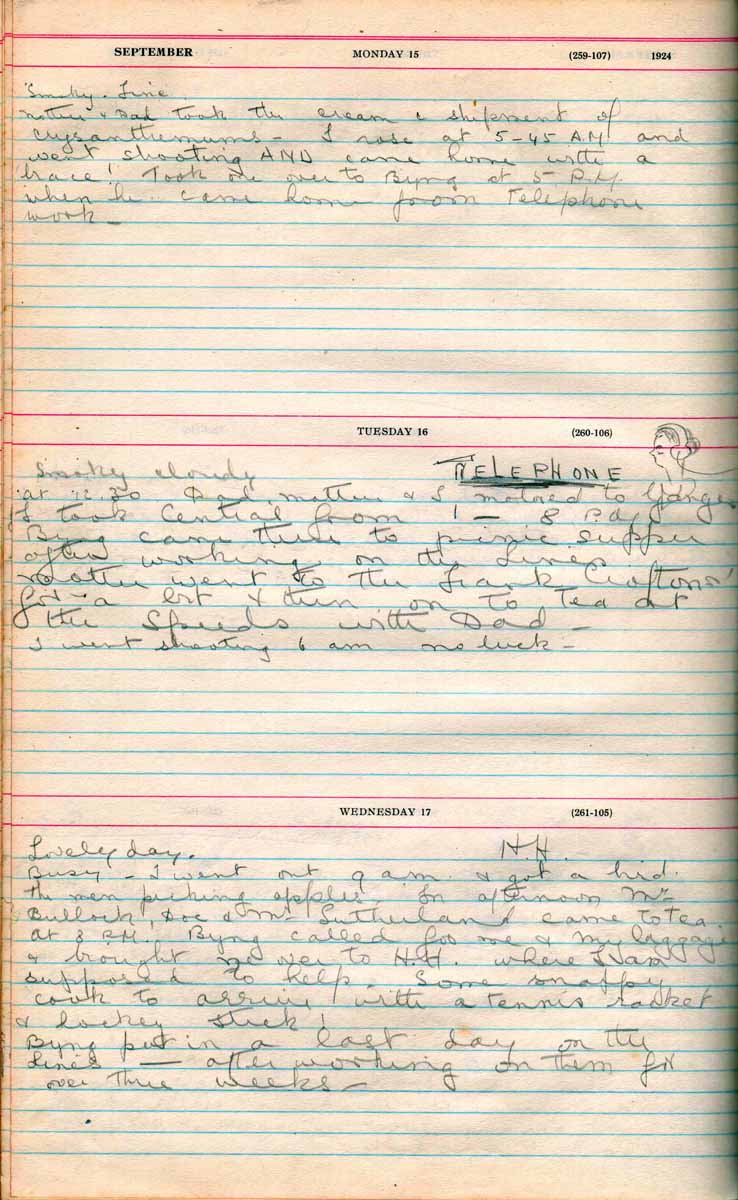 SEPTEMBER MONDAY 15 (259-107) 1924
Smoky. Fine
Mother & Dad took the cream & shipment of
crysanthemums - I rose at 5-45 A.M and
went shooting AND came home with a
brace! Took one over to Byng at 5 P.M.
when he came home from Telephone
work -
TUESDAY 16 (260-106)
Smoky cloudy TELEPHONE
at 12.30 Dad, mother & I motored to Ganges
I took Central from 1 - 8 P.M.
Byng came there to picnic supper
after working on the Lines
Mother went to the Frank Croftons'
for a bit & then on to Tea at
the Speeds with Dad -
I went shooting 6 am no luck -
WEDNESDAY 17 (261-105)
Lovely day. H.H.
Busy - I went out 9 am. & got a bird.
The men picking apples. In afternoon Mr
Bullock, Doc & Mr Sutherland came to tea.
at 8 P.M. Byng called for me & my luggage
& brought me over to H.H. where I am
supposed to help. Some snappy
cook to arrive with a tennis racket
& hockey stick!
Byng put in a last day on the
Lines - after working on them for
over three weeks -